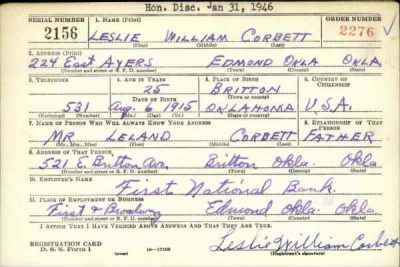 Hon. Disc. Jan 31, 1946
SERIAL NUMBER 1. NAME (Print) ORDER NUMBER
2156 LESLIE WILLIAM CORBETT 2276 ✓
(First) (Middle) (Last)
2. ADDRESS (Print)
224 East AYERS EDMOND OKLA OKLA.
(Number and street or R. F. D. number) (Town) (County) (State)
3. TELEPHONE 4. AGE IN YEARS 5. PLACE OF BIRTH 6. COUNTRY OF CITIZENSHIP
25 BRITTON
DATE OF BIRTH
531 Aug. 6 1915 OKLAHOMA U.S.A.
(Mo.) (Day) (Yr.) (State or country)
7. NAME OF PERSON WHO WILL ALWAYS KNOW YOUR ADDRESS 8. RELATIONSHIP OF THAT PERSON
MR LELAND CORBETT FATHER
(Mr., Mrs., Miss) (First) (Middle) (Last)
9. ADDRESS OF THAT PERSON
521 E. Britton Ave, Britton Okla. Okla.
(Number and street or R. F. D. number) (Town) (County) (State)
10. EMPLOYER'S NAME
First National Bank.
11. PLACE OF EMPLOYMENT OR BUSINESS
First & Broadway Edmond Okla. Okla.
(Number and street or R. F. D. number) (Town) (County) (State)
I AFFIRM THAT I HAVE VERIFIED ABOVE ANSWERS AND THAT THEY ARE TRUE.
REGISTRATION CARD
D. S. S. Form 1 (over) 16—17105 Leslie William Corbett
(Registrant's signature)